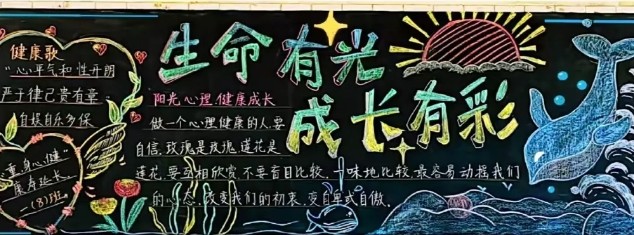 健康歌
"心平气和性开朗
严于律己贵有章
自娱自乐多保
重,身心健
康寿延长"
(8)班
生命有光
成长有彩
阳光心理 健康成长
做一个心理健康的人要
自信,玫瑰是玫瑰,莲花是
莲花,要互相欣赏,不要盲目比较,一味地比较,最容易动摇我们
的心态,改变我们的初衷,变自卑或自傲.